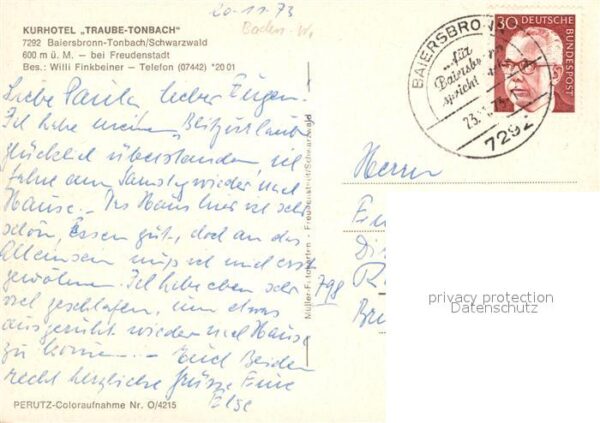 20-11-73
Baden-W.
KURHOTEL „TRAUBE-TONBACH"
7292 Baiersbronn-Tonbach/Schwarzwald
600 m ü. M. – bei Freudenstadt
Bes.: Willi Finkbeiner – Telefon (07442) *2001
Liebe Paula, lieber Eugen!
Ich habe meinen „Blitzurlaub
glücklich überstanden,
fahre am Samstg wieder nach
Hause. – Das Haus hier ist sehr
schön, Essen gut, doch an das
Alleinsein muss ich mich erst
gewöhnen. Ich habe eben sehr
viel geschlafen, um etwas
ausgeruht wieder nach Hause
zu kommen. – Euch Beiden
recht herzliche Grüsse Eure
Else
PERUTZ-Coloraufnahme Nr. O/4215
Müller-Fotokarten - Freudenstadt/Schwarzwald
BAIERSBRONN
...für
Baiersbronn
spricht
23.11.73
7292
30 DEUTSCHE
BUNDESPOST
Herrn
Eu
Di
799 R
Br
privacy protection
Datenschutz